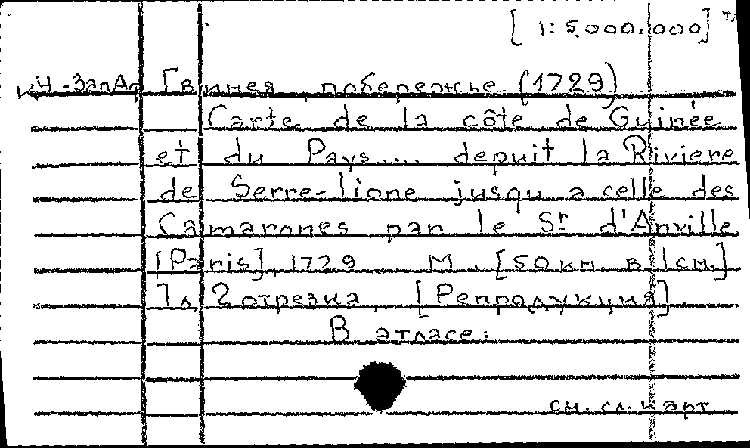 [1:5.000.000]
Гвинея, побережье (1729)
Carte de la côte de Guinée
et du Pays.... depuit la Riviere
de Serre-lione jusqu a celle des
Camarones par le Sr d'Anville
[Paris], 1729 М. [50 км в 1 см.]
1 л. 2 отрезка. [Репродукция]
В атласе:
см. сл. карт